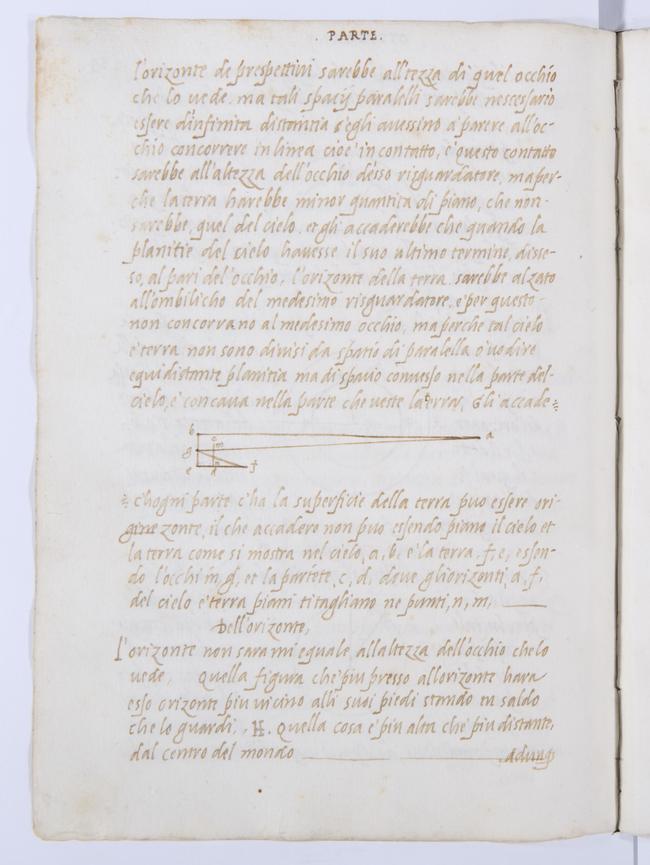 . PARTE.
l'orizonte de prespettivi sarebbe all'tezza di quel occhio
che lo uede. ma tali spatij paralelli sarebbe nescessario
essere d'infinita distantia s'egli auessino a parere all'oc-
chio concorrere in linea cioe' in contatto, e' questo contatto
sarebbe all'altezza dell'occhio d'esso risguardatore, ma per-
che la terra harebbe minor quantita di piano, che non
sarebbe, quel del cielo, et gli accaderebbe che quando la
planitie del cielo hauesse il suo ultimo termine, disse-
so, al pari del'occhio, l'orizonte della terra sarebbe alzato
all'ombilicho del medesimo risguardatore, e' per questo
non concorrano al medesimo occhio, ma perche tal cielo
e' terra non sono diuisi da spatio di paralella o' uo dire
equidistante planitia ma di spatio conuesso nella parte del
cielo, e' concaua nella parte che ueste la terra, Gli accade
b a
c m
g
e d f
c'hogni parte c'ha la superficie della terra puo essere ori-
zonte, il che accadere non puo essendo piano il cielo et
la terra come si mostra nel cielo, a, b, e' la terra, f, e, essen-
do l'occhi in, g, et la pariete, c, d, doue gli orizonti, a, f,
del cielo e' terra piani ti tagliano ne punti, n, m,
Dell'orizonte,
L'orizonte non sara mi eguale all altezza dell'occhio che lo
uede, quella figura che' piu presso all orizonte hara
esso orizonte piu uicino alli suoi piedi stando en saldo
che lo guardi, .H. quella cosa e' piu alta che' piu distante,
dal centro del mondo adunq